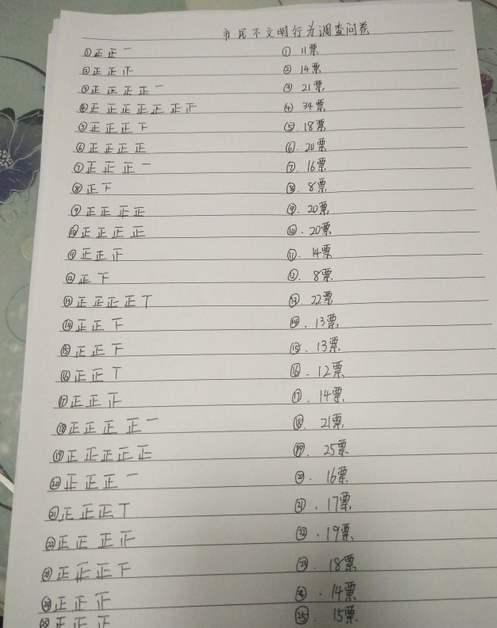 市民不文明行为调查问卷
① 正正一 ① 11票
② 正正正 ② 14票
③ 正正正正一 ③ 21票
④ 正正正正正正正 ④ 34票
⑤ 正正正下 ⑤ 18票
⑥ 正正正正 ⑥. 20票
⑦ 正正正一 ⑦. 16票
⑧ 正下 ⑧. 8票
⑨ 正正正正 ⑨. 20票
⑩ 正正正正 ⑩. 20票
⑪ 正正正 ⑪. 14票
⑫ 正下 8票
⑬ 正正正正丅 ⑬ 22票
⑭ 正正下 ⑭. 13票
⑮ 正正下 ⑮. 13票
⑯ 正正丅 ⑯. 12票
⑰ 正正正 ⑰. 14票
⑱ 正正正正一 ⑱ 21票
⑲ 正正正正正 ⑲. 25票
⑳ 正正正一 ⑳. 16票
㉑ 正正正丅 ㉑. 17票
㉒ 正正正正 ㉒. 19票
㉓ 正正正下 ㉓. 18票
㉔ 正正正 ㉔. 14票
㉕ 正正正 ㉕. 15票